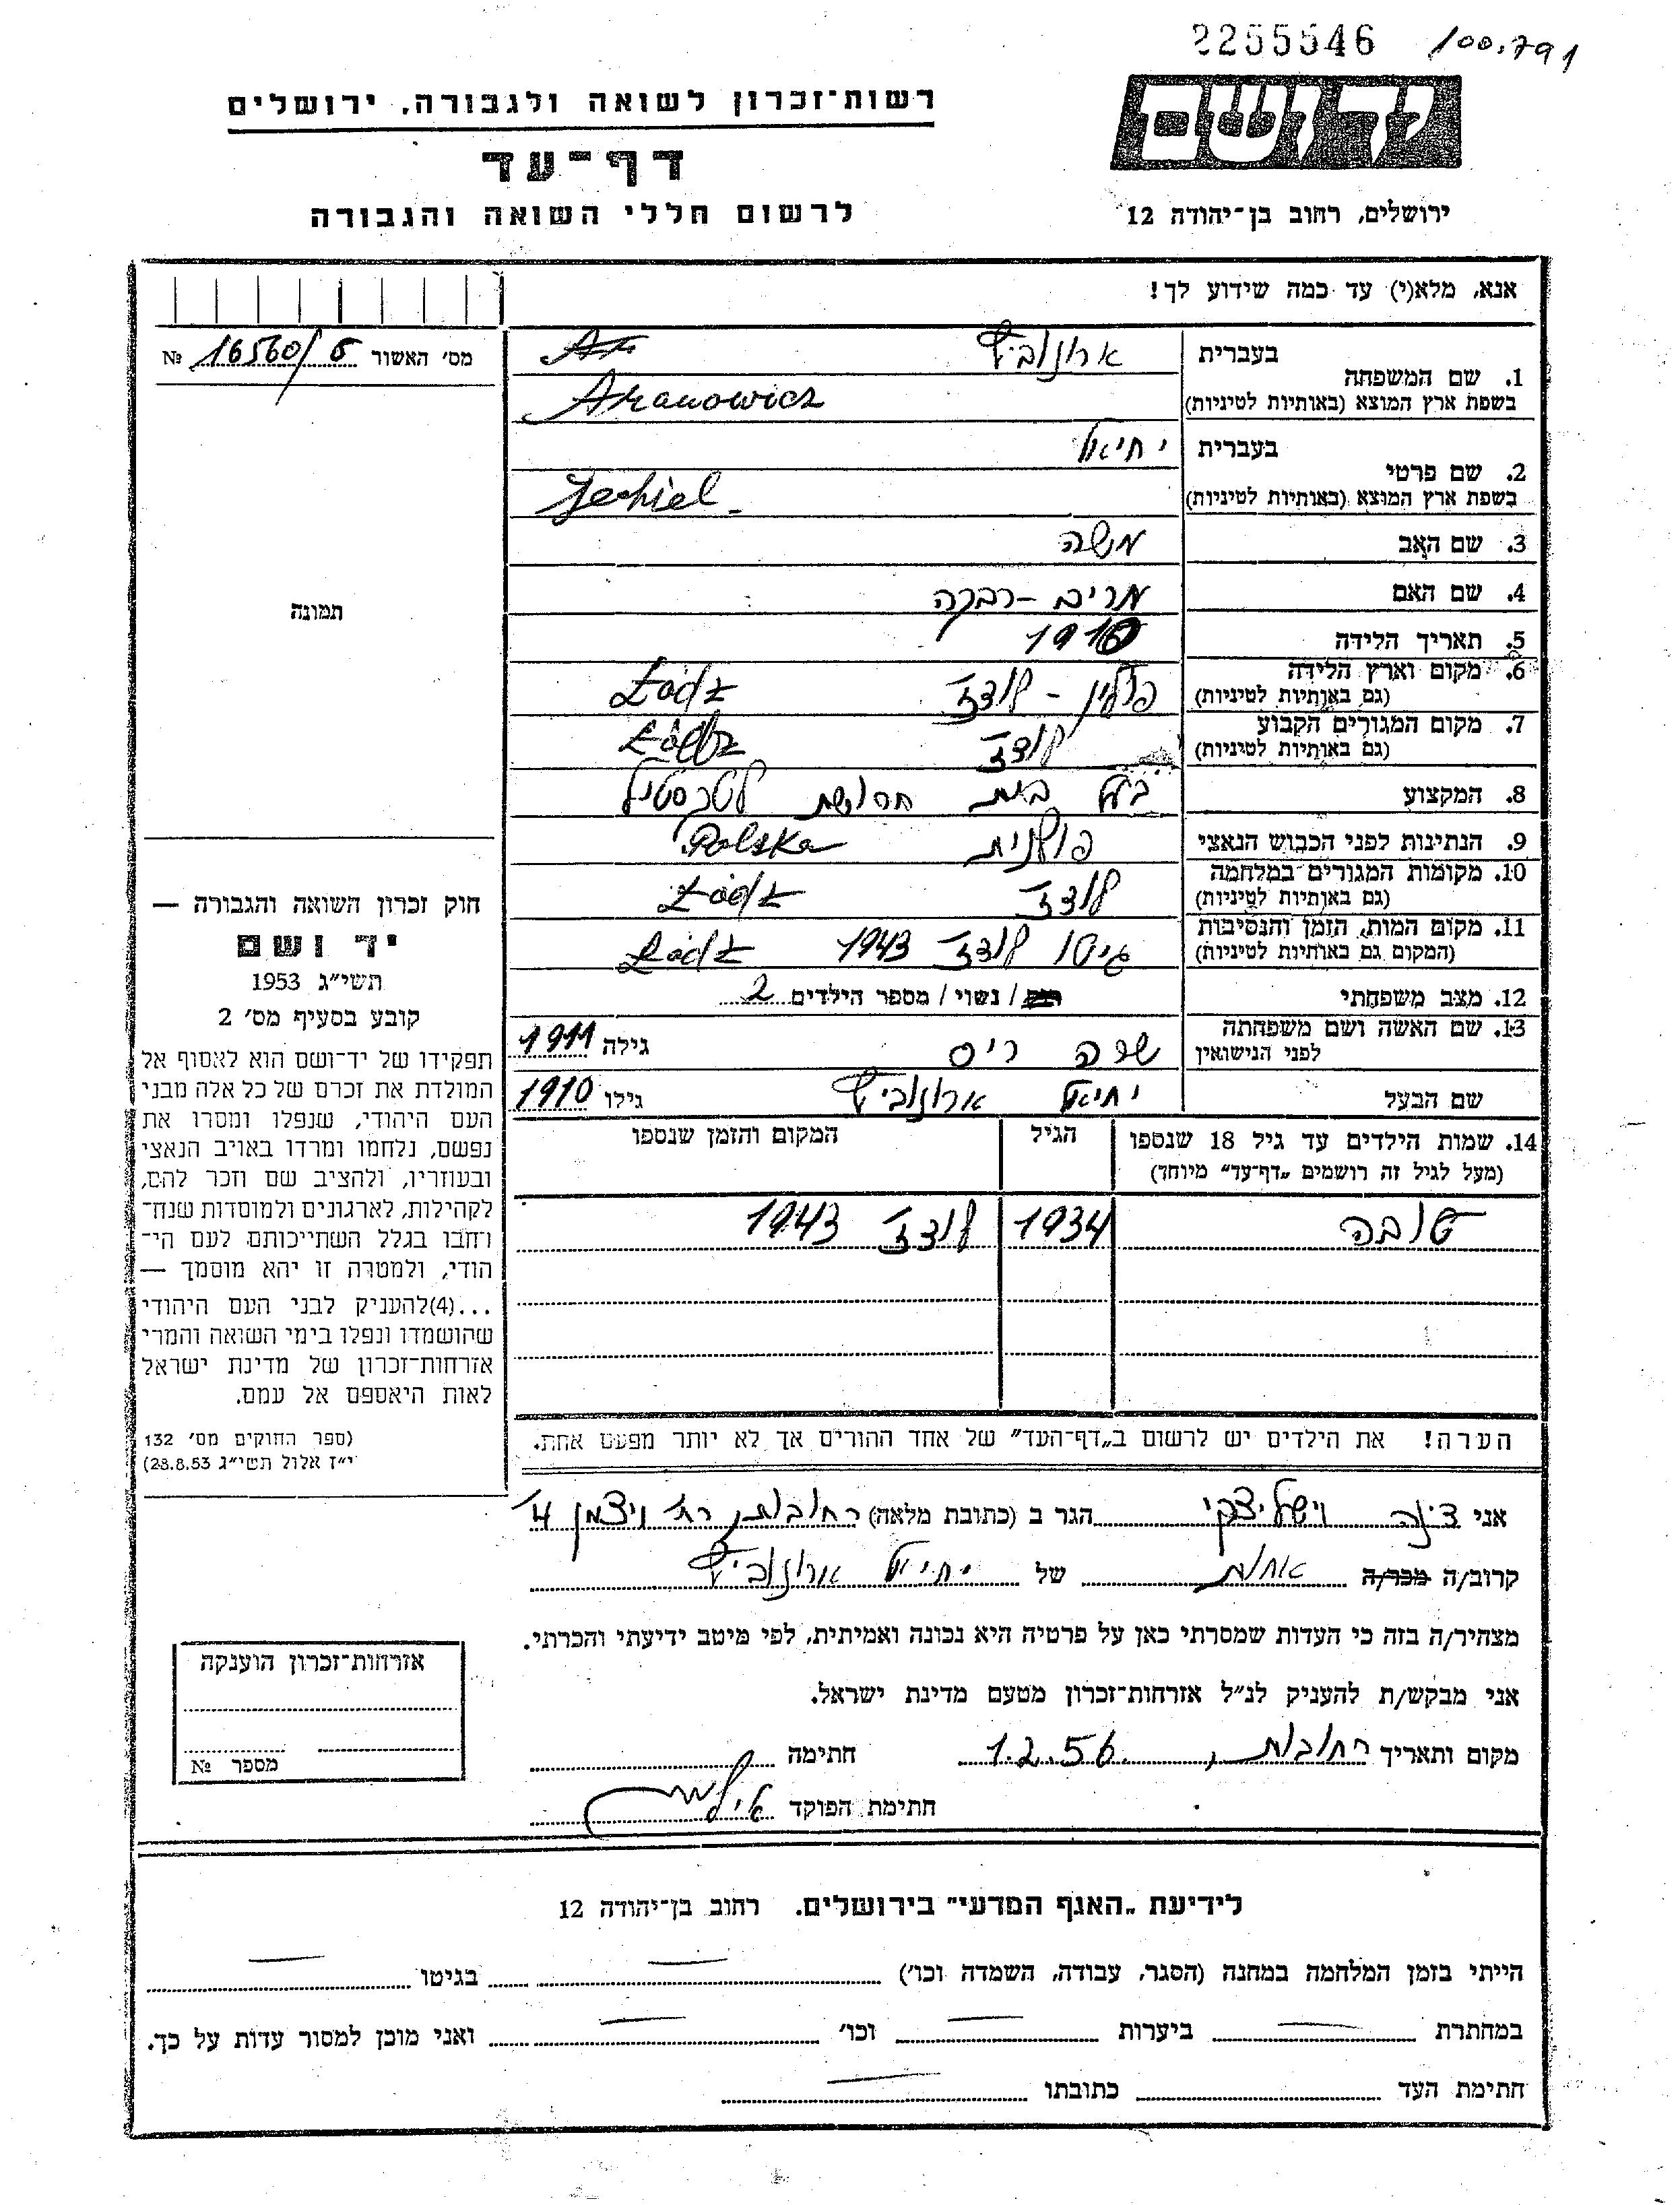 2255546 100.791
יד ושם
רשות־זכרון לשואה ולגבורה, ירושלים
דף־עד
לרשום חללי השואה והגבורה
ירושלים, רחוב בן־יהודה 12
אנא, מלא(י) עד כמה שידוע לך!
מס' האשור № 16560/5
1. שם המשפחה
בעברית ארונוביץ
בשפת ארץ המוצא (באותיות לטיניות) Aranowicz
2. שם פרטי
בעברית יחיאל
בשפת ארץ המוצא (באותיות לטיניות) Jechiel
3. שם האב משה
4. שם האם מרים - רבקה
5. תאריך הלידה 1910
6. מקום וארץ הלידה
(גם באותיות לטיניות) פולין - לודז Łódz
7. מקום המגורים הקבוע
(גם באותיות לטיניות) לודז Łódz
8. המקצוע בעל בית חרושת לטכסטיל
9. הנתינות לפני הכבוש הנאצי פולנית Polska
10. מקומות המגורים במלחמה
(גם באותיות לטיניות) לודז Łódz
11. מקום המות, הזמן והנסיבות
(המקום גם באותיות לטיניות) גיטו לודז 1943 Łódz
12. מצב משפחתי רוק / נשוי / מספר הילדים 2
13. שם האשה ושם משפחתה
לפני הנישואין שרה רייס גילה 1911
שם הבעל יחיאל ארונוביץ גילו 1910
14. שמות הילדים עד גיל 18 שנספו הגיל המקום והזמן שנספו
(מעל לגיל זה רושמים „דף־עד" מיוחד)
טובה 1934 לודז 1943
הערה! את הילדים יש לרשום ב„דף־העד" של אחד ההורים אך לא יותר מפעם אחת.
תמונה
חוק זכרון השואה והגבורה —
יד ושם
תשי"ג 1953
קובע בסעיף מס' 2
תפקידו של יד־ושם הוא לאסוף אל
המולדת את זכרם של כל אלה מבני
העם היהודי, שנפלו ומסרו את
נפשם, נלחמו ומרדו באויב הנאצי
ובעוזריו, ולהציב שם וזכר להם,
לקהילות, לארגונים ולמוסדות שנח־
רבו בגלל השתייכותם לעם הי־
הודי, ולמטרה זו יהא מוסמך —
...(4)להעניק לבני העם היהודי
שהושמדו ונפלו בימי השואה והמרי
אזרחות־זכרון של מדינת ישראל
לאות היאספם אל עמם.
(ספר החוקים מס' 132
י"ז אלול תשי"ג 28.8.53)
אני דינה וישליצקי הגר ב (כתובת מלאה) רחובות, רח' ויצמן 14
קרוב/ה מכר/ה אחות של יחיאל ארונוביץ
מצהיר/ה בזה כי העדות שמסרתי כאן על פרטיה היא נכונה ואמיתית, לפי מיטב ידיעתי והכרתי.
אני מבקש/ת להעניק לנ"ל אזרחות־זכרון מטעם מדינת ישראל.
מקום ותאריך רחובות, 1.2.56 חתימה
חתימת הפוקד
אזרחות־זכרון הוענקה
מספר №
לידיעת „האגף המדעי" בירושלים. רחוב בן־יהודה 12
הייתי בזמן המלחמה במחנה (הסגר, עבודה, השמדה וכו') — בגיטו —
במחתרת — ביערות — וכו' — ואני מוכן למסור עדות על כך.
חתימת העד כתובתו —